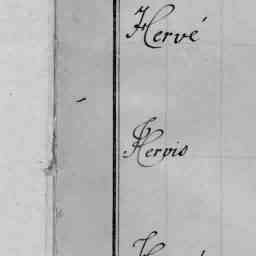 Hervé
Hervis